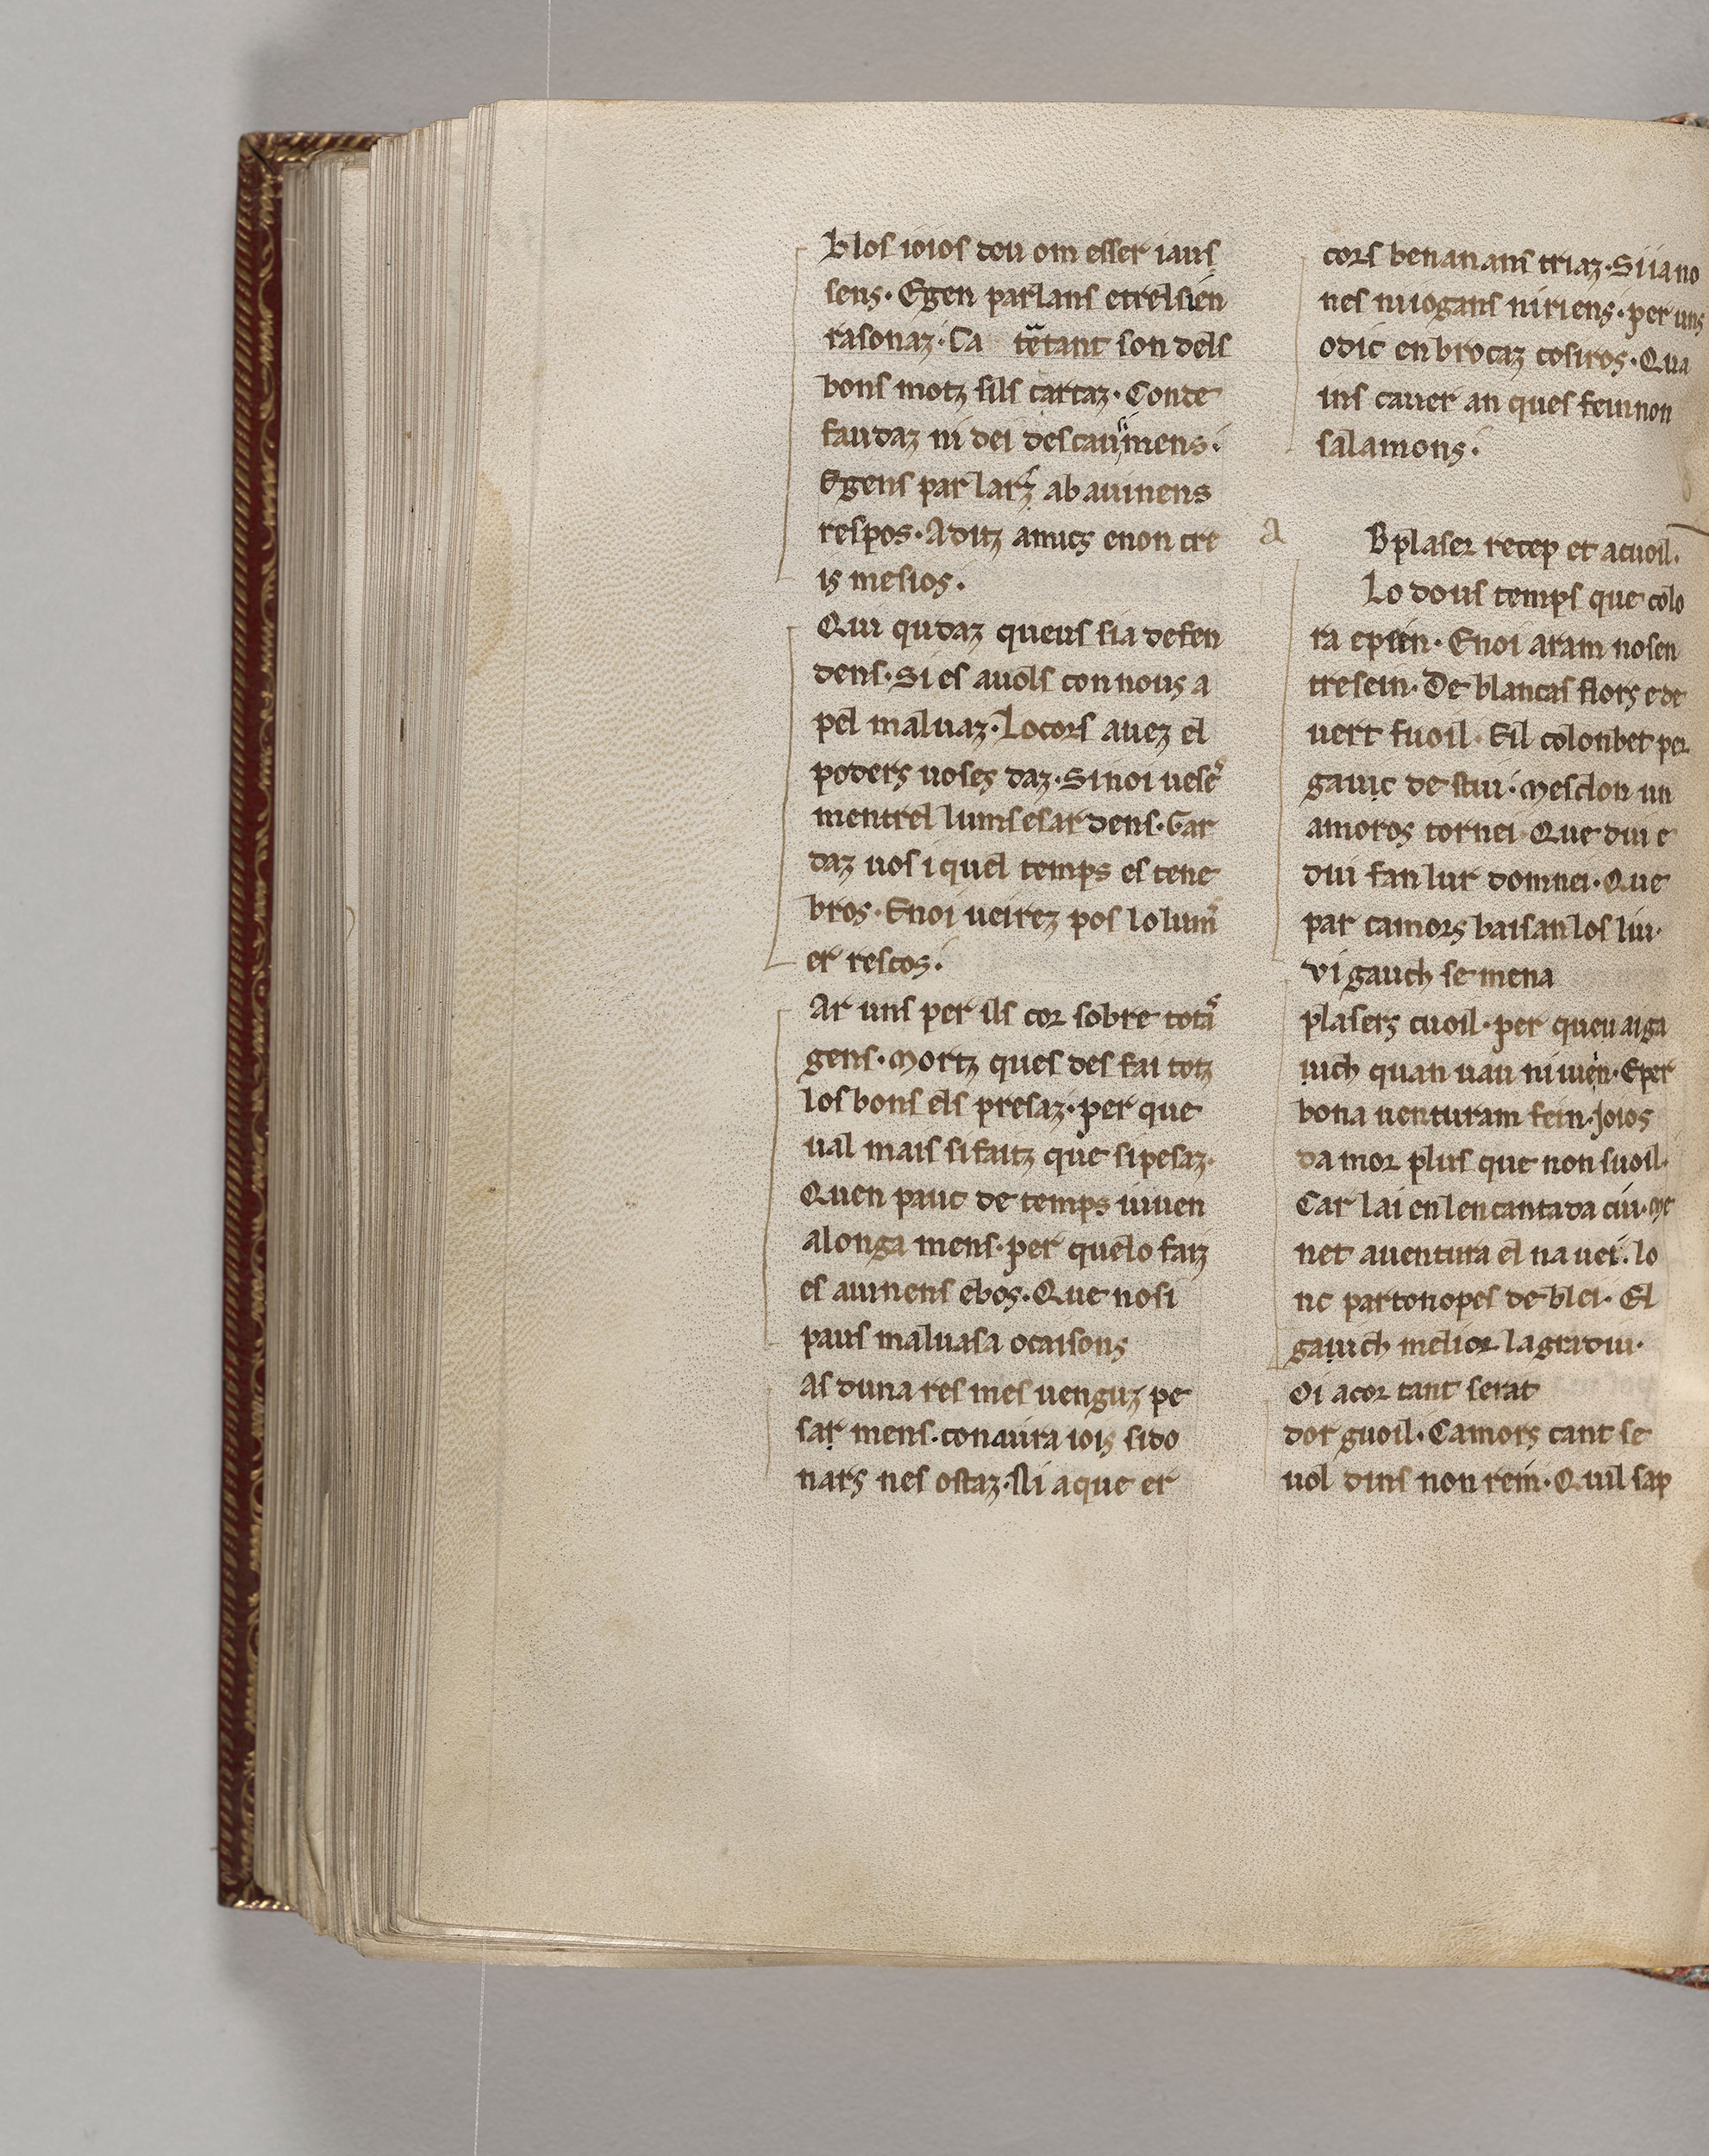 b los ioios deu om esser iaus
sens· Egen parlans etrelsien
rasonaz· Ca tetant son dels
bons motz sils cartaz· Conte
faudaz ni dei descausimens·
Egens parlarz ab auinens
respos· Aditz amics enon cre
is mesios·
Qui qudaz queus sia defen
dens· Si es auols con nous a
pel maluaz· Locors auez el
poders uoses daz· Si noi uese
mentrel lumsesardens· Gar
daz uos i quel temps es tene
bros· Enoi ueirez pos lo lum
er rescos·
Ar uns per ils cor sobre tota
gens· Mortz ques des fai totz
los bons els presaz· per que
ual mais sifaitz que sipesaz·
Quen pauc de temps uiuen
alonga mens· per quelo faiz
es auinens ebos· Que nosi
paus maluasa ocaisons
As duna res mes uenguz pe
sar mens· conaura iois sido
nars nes ostaz· Ni aque er
cors benanans triaz· Si iano
nes nuogans niriens· per uns
odic enbrocaz cosiros· Qua
ins cauer an ques feuinon
salamons·
a
B plaser recep et acuoil·
Lo dous temps que colo
ra epein· Enoi aram nosen
tresein· De blancas flors ede
uert fuoil· Eil colonbet per
gauic de stiu· Mesclon un
amoros tornei Que dui e
dui fan lur domnei· Que
par camors baisan los liu·
vi gauch se mena
plasers cuoil· per queu aiga
uich quan uau ni uien· Eper
bona uenturam fein· Joios
damor plus que non suoil·
Car lai enlencantada ciu· me
net auentura el na uei· lo
nc partonopes de blei· El
gauich melior lagradiu·
Oi acor tant serat
dor guoil· Camors tant se
uol dins non rein· Quil sap